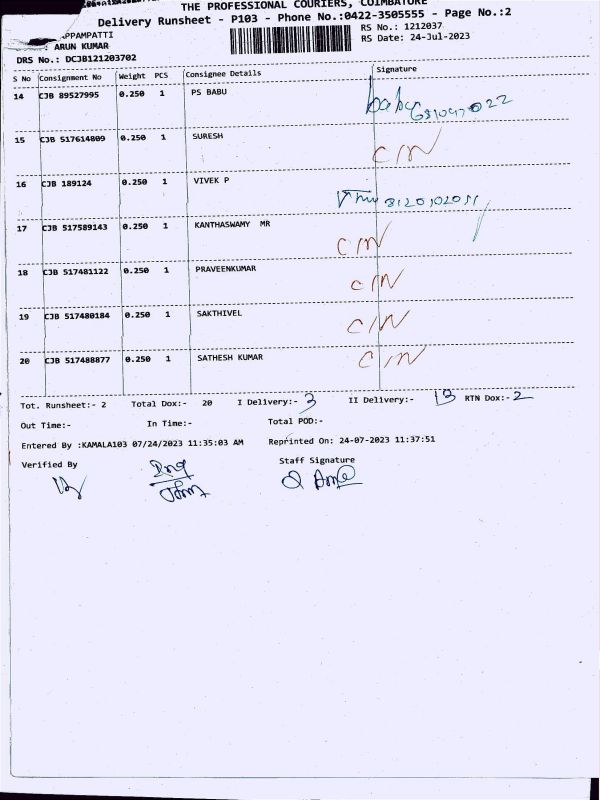 THE PROFESSIONAL COURIERS, COIMBATORE
Delivery Runsheet - P103 - Phone No.:0422-3505555 - Page No.:2
APPAMPATTI
RS No.: 1212037
: ARUN KUMAR
RS Date: 24-Jul-2023
DRS No.: DCJB121203702
S No Consignment No Weight PCS Consignee Details Signature
14 CJB 89527995 0.250 1 PS BABU babu
15 CJB 517614809 0.250 1 SURESH C/N
16 CJB 189124 0.250 1 VIVEK P
17 CJB 517589143 0.250 1 KANTHASWAMY MR C/N
18 CJB 517481122 0.250 1 PRAVEENKUMAR C/N
19 CJB 517480184 0.250 1 SAKTHIVEL C/N
20 CJB 517488877 0.250 1 SATHESH KUMAR C/N
Tot. Runsheet:- 2 Total Dox:- 20 I Delivery:- 3 II Delivery:- 13 RTN Dox:- 2
Out Time:- In Time:- Total POD:-
Entered By :KAMALA103 07/24/2023 11:35:03 AM Reprinted On: 24-07-2023 11:37:51
Verified By Staff Signature